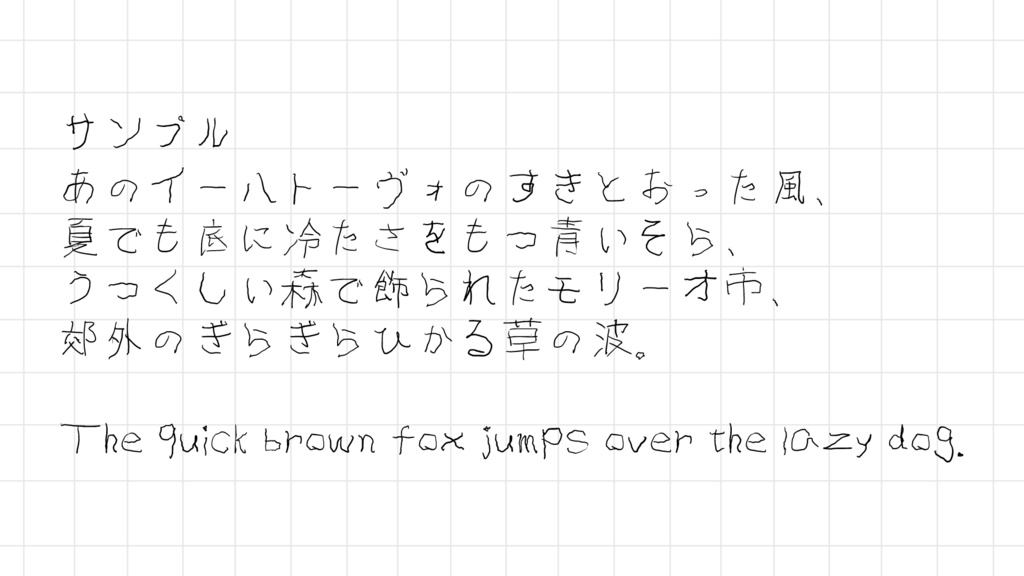 サンプル
あのイーハトーヴォのすきとおった風、
夏でも底に冷たさをもつ青いそら、
うつくしい森で飾られたモリーオ市、
郊外のぎらぎらひかる草の波。
The quick brown fox jumps over the lazy dog.